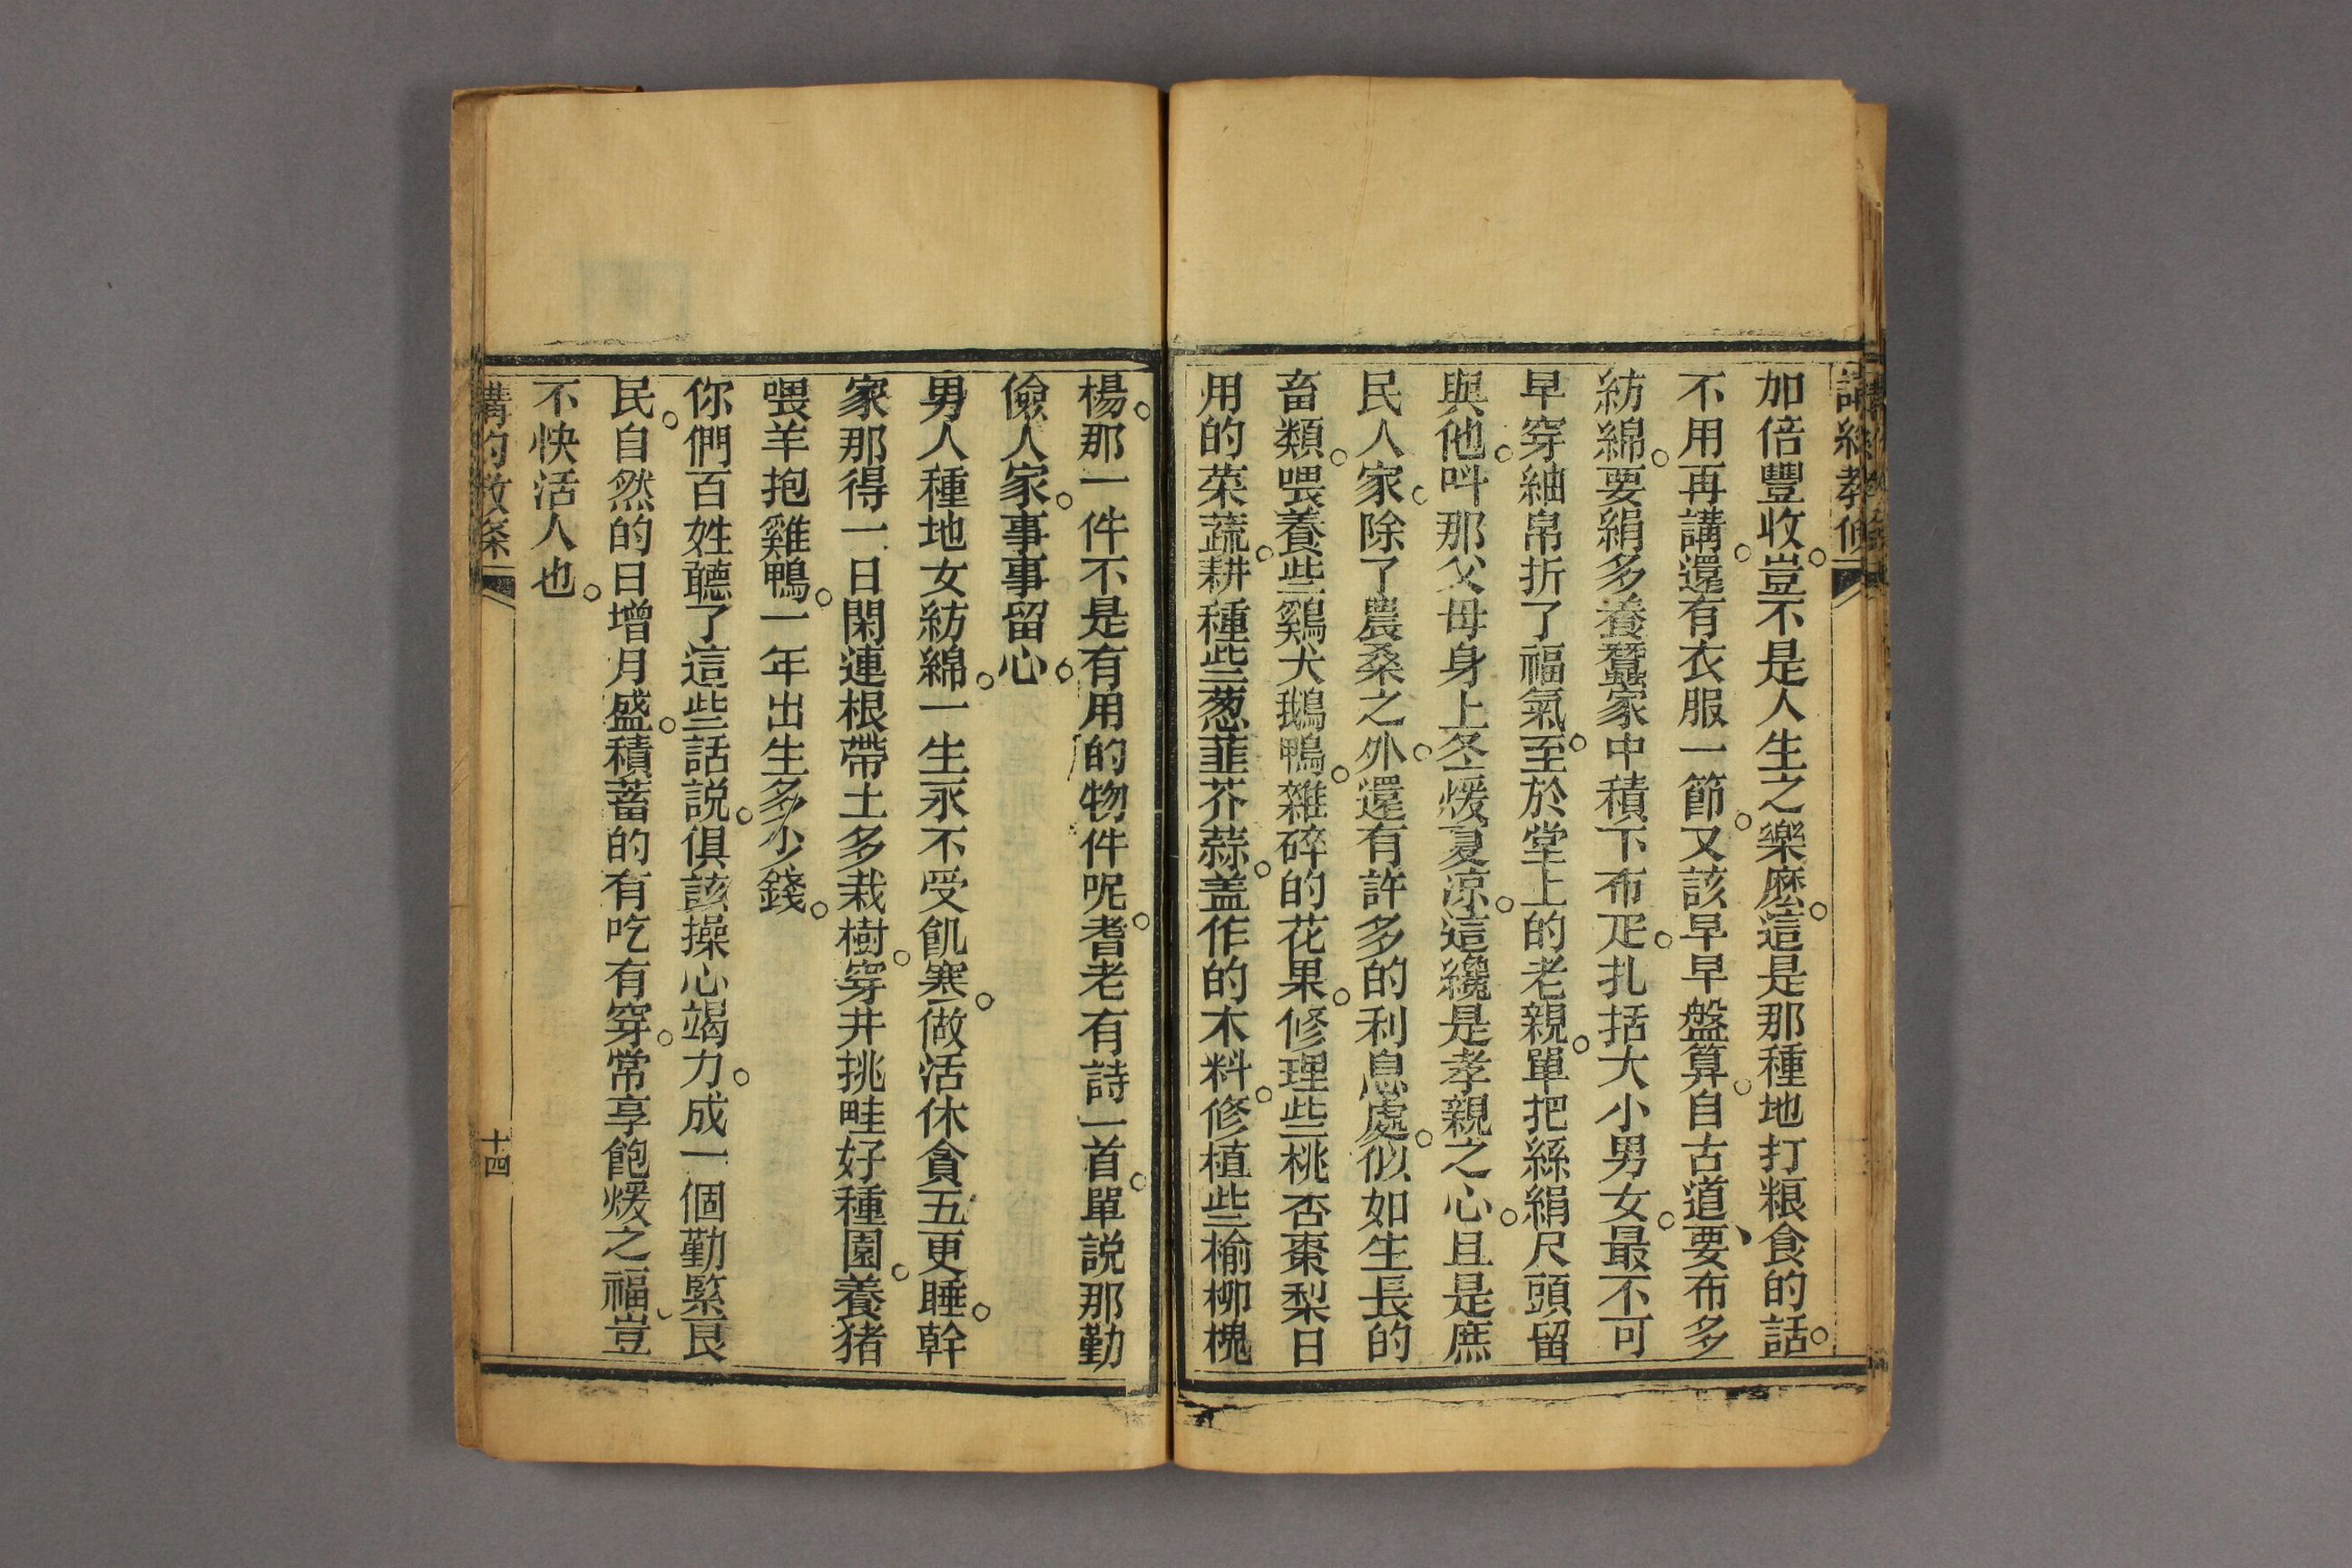 講約教條
加倍豐收。豈不是人生之樂麽。這是那種地打粮食的話。
不用再講。還有衣服一節。又該早早盤算。自古道、要布多
紡綿。要絹多養蠶家中積下布疋。扎括大小男女。最不可
早穿紬帛折了福氣。至於堂上的老親。單把絲絹尺頭留
與他。呌那父母身上冬煖夏凉。這纔是孝親之心。且是庶
民人家。除了農桑之外。還有許多的利息處。似如生長的
畜類。喂養些鷄犬鵝鴨。雜碎的花果。修理些桃杏棗梨日
用的菜蔬。耕種些葱韮芥蒜。盖作的木料。修植些榆柳槐
楊。那一件不是有用的物件呢。耆老有詩一首。單説那勤
儉人家。事事留心。
男人種地女紡綿。一生永不受飢寒。做活休貪五更睡。幹
家那得一日閑連根帶土多栽樹。穿井挑畦好種園。養猪
喂羊抱雞鴨。一年出生多少錢。
你們百姓聽了這些話説。俱該操心竭力。成一個勤緊良
民。自然的日增月盛。積蓄的有吃有穿。常享飽煖之福。豈
不快活人也。
講約教條
十四